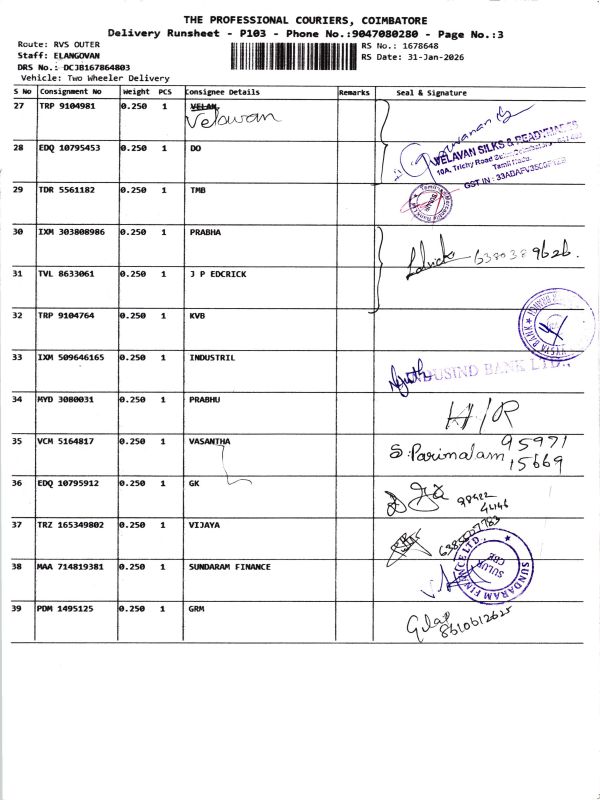 THE PROFESSIONAL COURIERS, COIMBATORE
Delivery Runsheet - P103 - Phone No.:9047080280 - Page No.:3
Route: RVS OUTER
RS No.: 1678648
Staff: ELANGOVAN
RS Date: 31-Jan-2026
DRS No.: DCJB167864803
Vehicle: Two Wheeler Delivery
S No Consignment No Weight PCS Consignee Details Remarks Seal & Signature
27 TRP 9104981 0.250 1 VELAN
Velawan
28 EDQ 10795453 0.250 1 DO
VELAVAN SILKS & READYMADES
10A, Trichy Road
Tamil Nadu.
GST IN : 33ADAFV3500F1ZB
29 TDR 5561182 0.250 1 TMB
30 IXM 303808986 0.250 1 PRABHA
Edrick 6380389626.
31 TVL 8633061 0.250 1 J P EDCRICK
32 TRP 9104764 0.250 1 KVB
VYSYA BANK
33 IXM 509646165 0.250 1 INDUSTRIL
INDUSIND BANK LTD.,
34 MYD 3080031 0.250 1 PRABHU
H/R
35 VCM 5164817 0.250 1 VASANTHA
S. Parimalam 95971
15669
36 EDQ 10795912 0.250 1 GK
37 TRZ 165349802 0.250 1 VIJAYA
38 MAA 714819381 0.250 1 SUNDARAM FINANCE
SUNDARAM FINANCE LTD.,
SULUR
CBE
39 PDM 1495125 0.250 1 GRM
8610612625